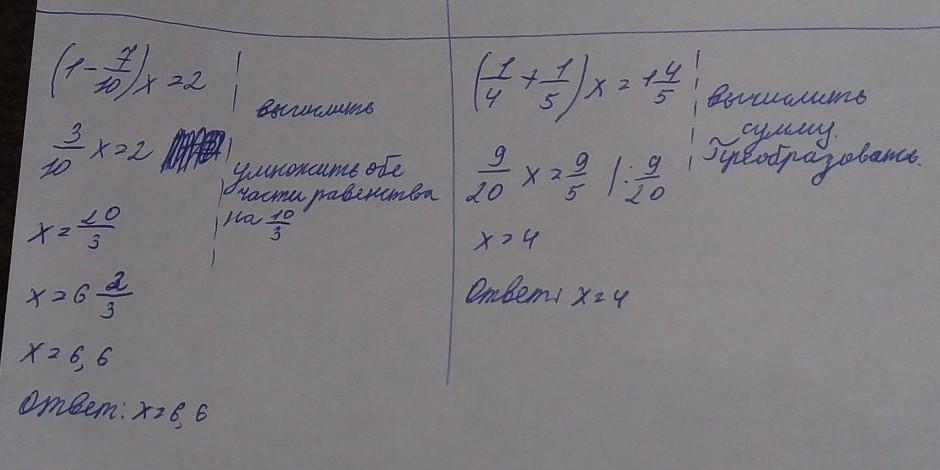 (1 - 7/10) x = 2
вычислить
3/10 x = 2
умножить обе
части равенства
на 10/3
x = 20/3
x = 6 2/3
x = 6,6
Ответ: x = 6,6
(1/4 + 1/5) x = 1 4/5
вычислить
сумму.
Преобразовать.
9/20 x = 9/5 | : 9/20
x = 4
Ответ: x = 4